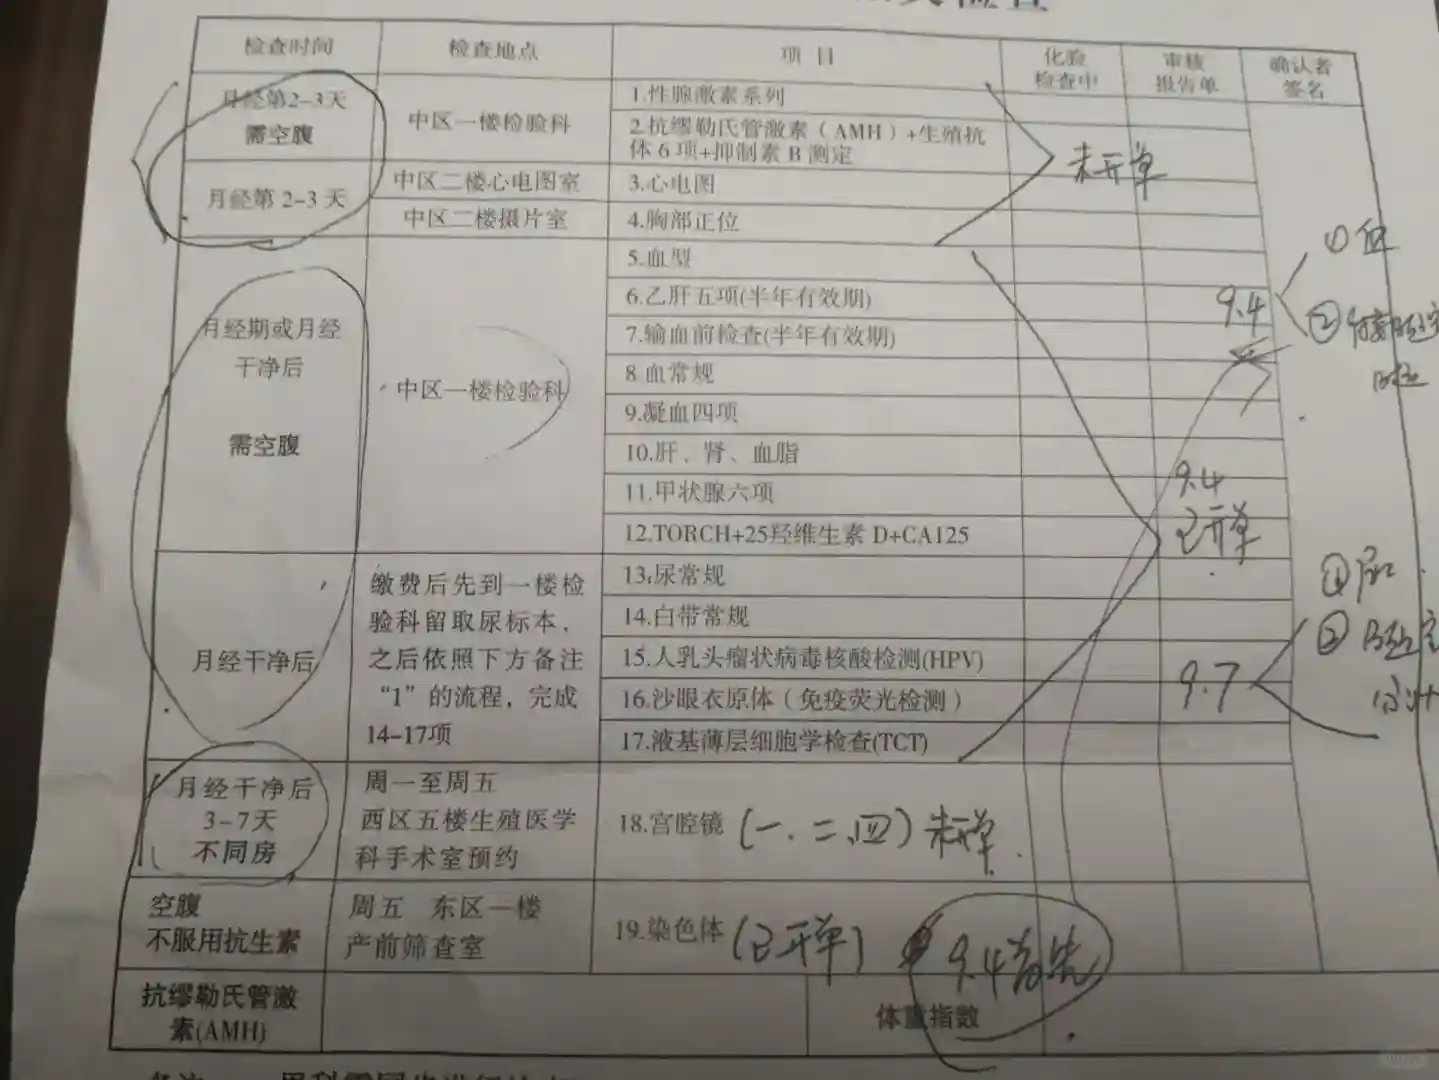 检查时间 检查地点 项 目 化验检查中 审核报告单 确认者签名
月经第2-3天
需空腹
中区一楼检验科
1.性腺激素系列
2.抗缪勒氏管激素（AMH）+生殖抗
体6项+抑制素B测定
未开单
月经第2-3天
中区二楼心电图室 3.心电图
中区二楼摄片室 4.胸部正位
月经期或月经
干净后
需空腹
中区一楼检验科
5.血型
6.乙肝五项(半年有效期)
9.4
① 血
②
7.输血前检查(半年有效期)
8.血常规
9.凝血四项
10.肝、肾、血脂
11.甲状腺六项
9.4
已开单
12.TORCH+25羟维生素D+CA125
月经干净后
缴费后先到一楼检
验科留取尿标本，
之后依照下方备注
“1”的流程，完成
14-17项
13.尿常规
14.白带常规
15.人乳头瘤状病毒核酸检测(HPV)
16.沙眼衣原体（免疫荧光检测）
17.液基薄层细胞学检查(TCT)
9.7
①
②
月经干净后
3-7天
不同房
周一至周五
西区五楼生殖医学
科手术室预约
18.宫腔镜 (一、二、四) 未开单
空腹
不服用抗生素
周五 东区一楼
产前筛查室
19.染色体 (已开单)
9.4首先
抗缪勒氏管激
素(AMH)
体重指数